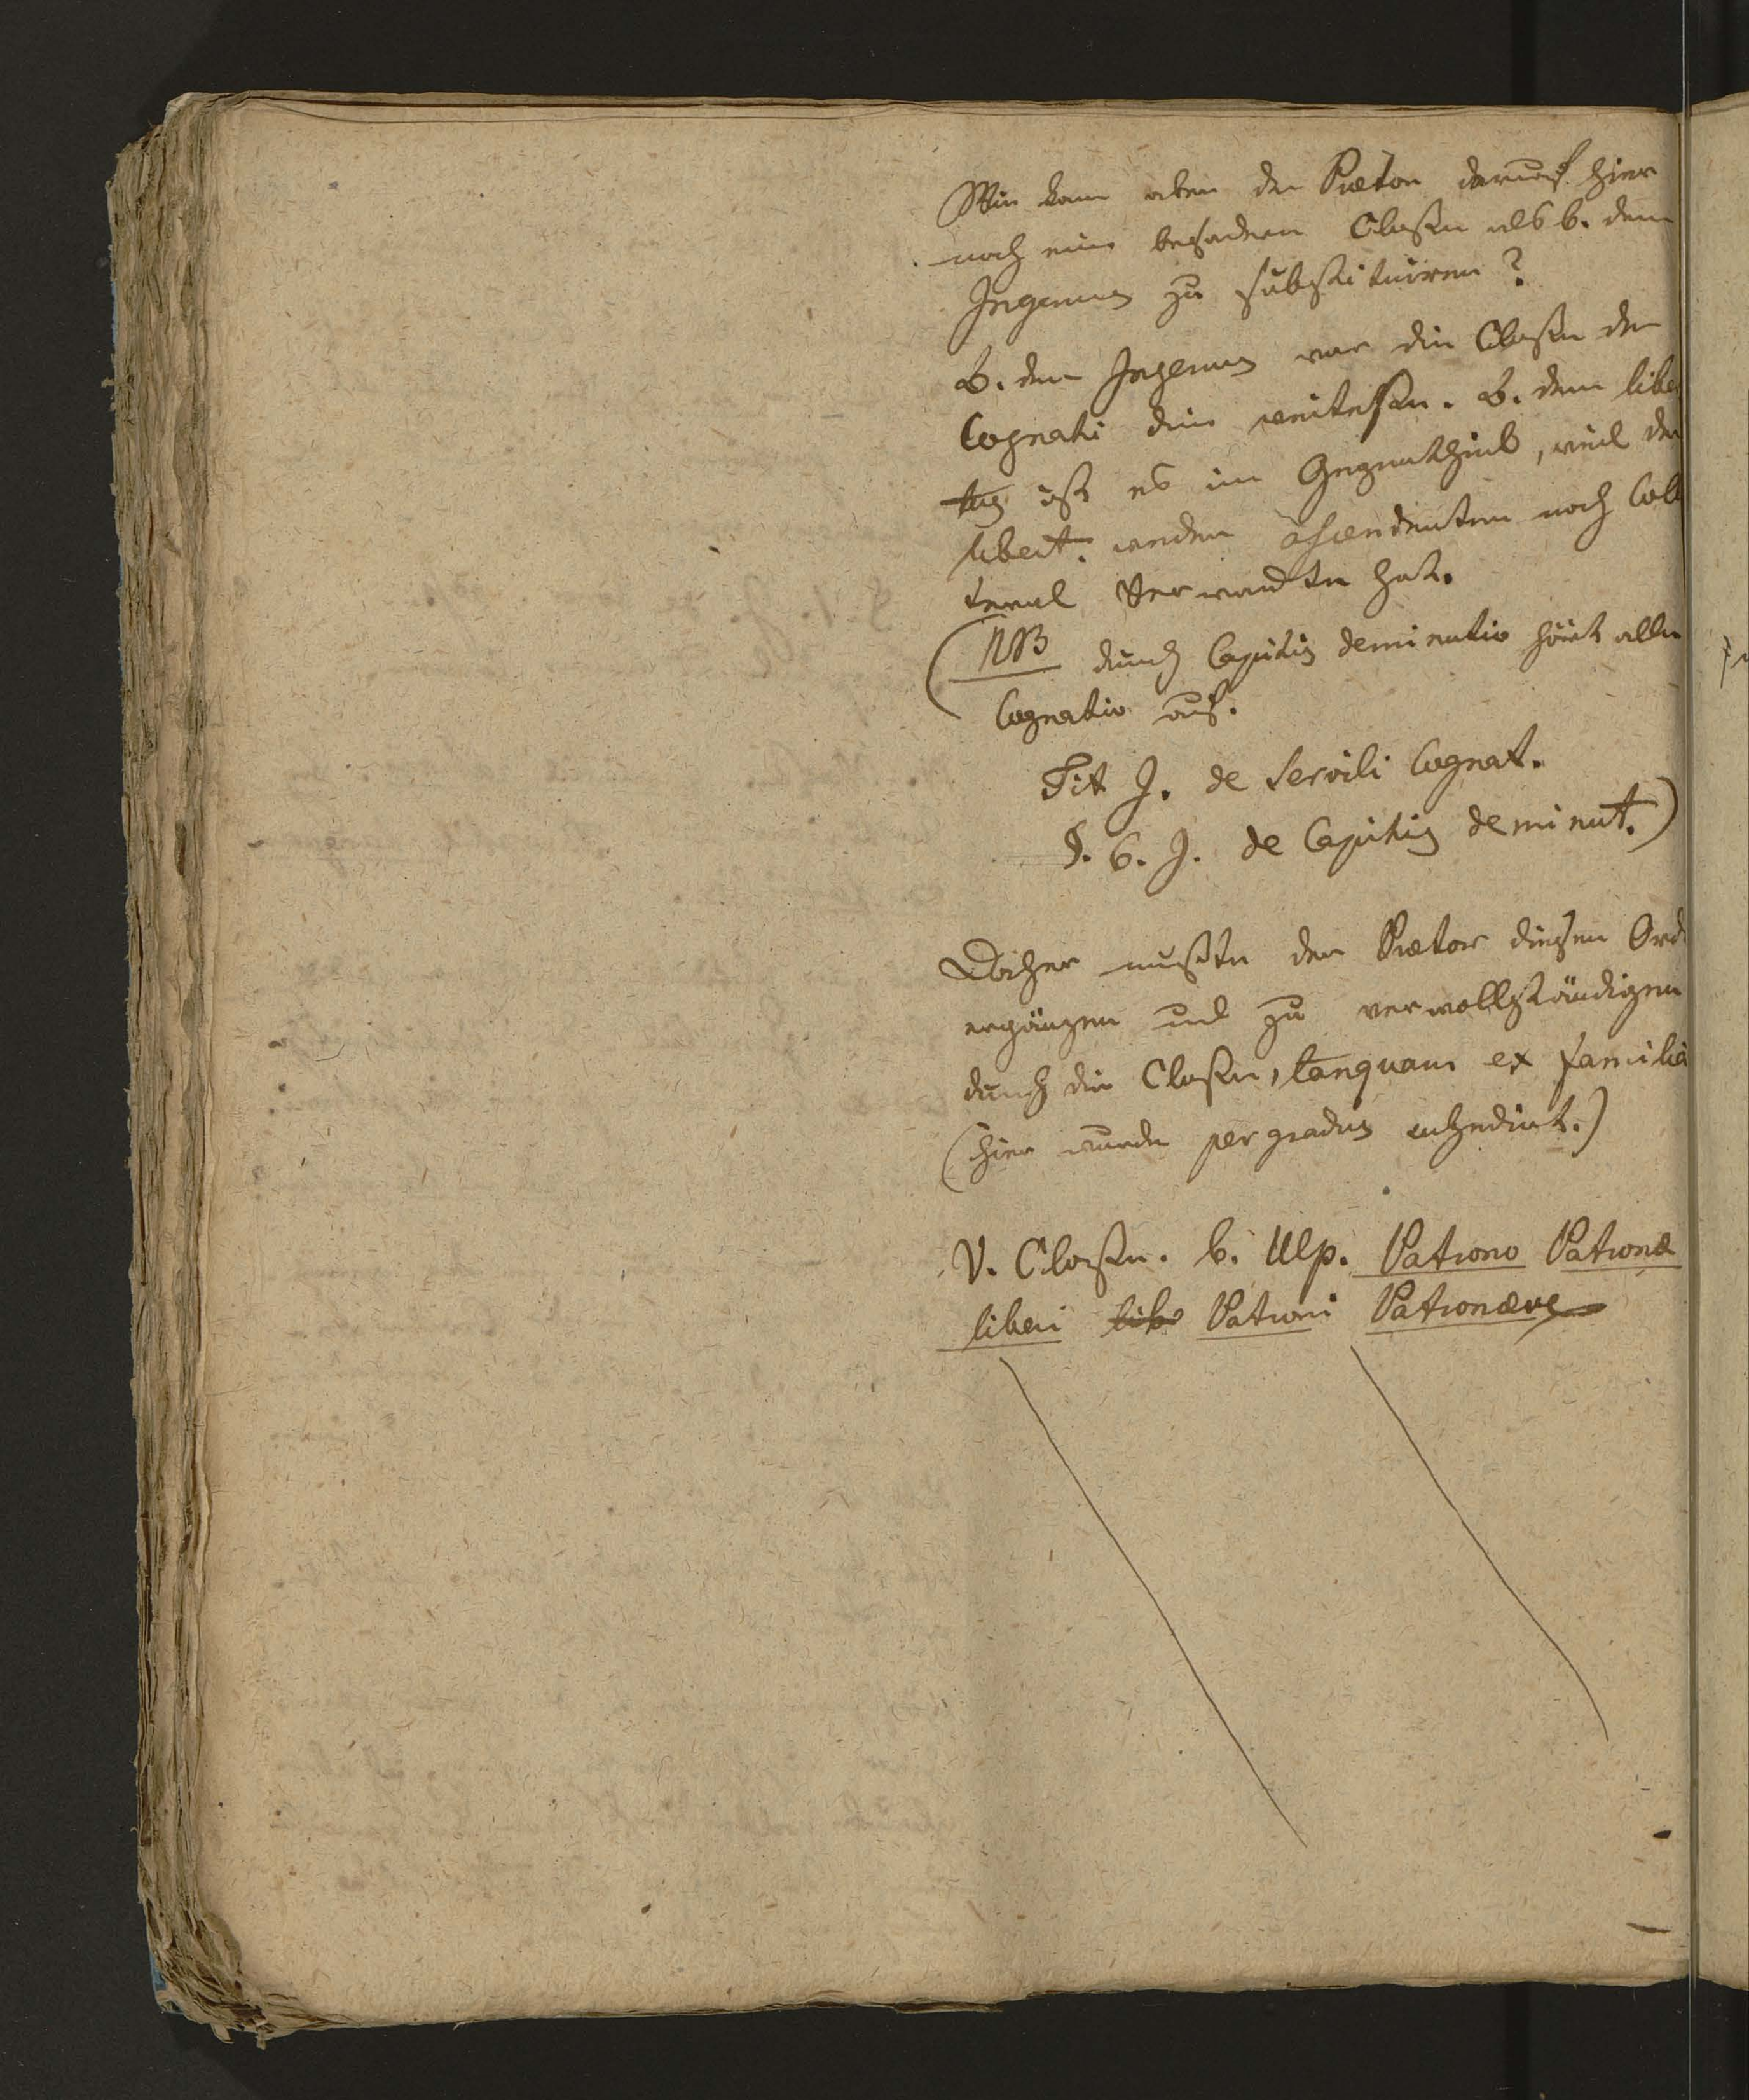 Wie kam aber der Praetor darauf hier
noch eine besondere Classe als b. dem
Ingenuus zu substituiren?
B. dem Ingenuus war die Classe der
Cognati die weiteste. B. dem libe
tus ist es im Gegentheil, weil der
libert. weder ascendenten noch Coll
teral Verwandte hat.
(NB durch Capitis deminutio hört alle
Cognatio auf.
Tit J. de servili Cognat.
§. 6. J. de Capitis deminut.)
Daher mußte der Praetor diesen Ord
ergänzen und zu vervollständigen
durch die Classe, tanquam ex familia
(hier wurde per gradus succedirt.)
V. Classe. b. Ulp. Patrono Patronae
liberi Patroni Patronaeve